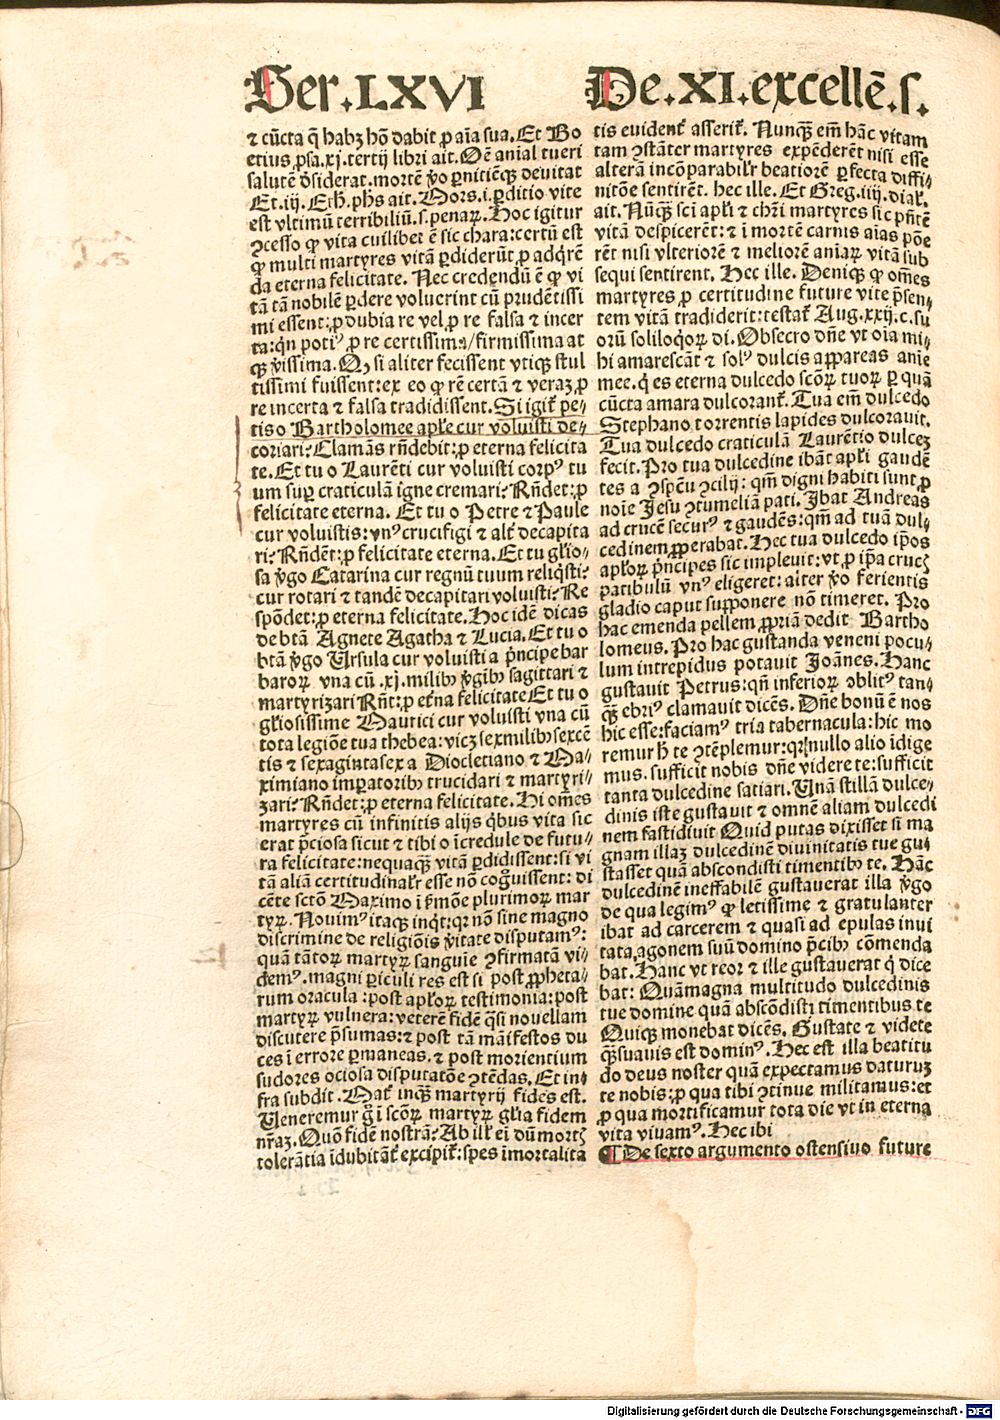 Ser.LXVI
De.XI.excellē.ſ.
⁊ cūcta q̄ habꝫ hō dabit ꝓ aīa sua. Et Bo
etius ꝓsa.xj.tertij libri ait. Oē anīal tueri
salutē d̄siderat. mortē v̄o ꝑnitiēqꝫ deuitat
Et.iij. Eth. phs ait. Mors.i.ꝑditio vite
est vltimū terribiliū.s.penaꝝ. Hoc igitur
ꝯcesso ꝙ vita cuilibet ē sic chara: certū est
ꝙ multi martyres vitā ꝑdiderūt ꝓ adq̄rē
da eterna felicitate. Nec credendū ē ꝙ vi
tā tā nobilē ꝑdere voluerint cū prudētissi
mi essent: ꝓ dubia re vel ꝓ re falsa ⁊ incer
ta: qn poti⁹ ꝓ re certissima/firmissima at
qꝫ v̄issima. Qꝫ si aliter fecissent vtiqꝫ stul
tissimi fuissent: ex eo ꝙ rē certā ⁊ veraꝫ ꝓ
re incerta ⁊ falsa tradidissent. Si igit᷑ pe⸗
tis o Bartholomee apl̄e cur voluisti de⸗
coriari? Clamās rn̄debit: ꝓ eterna felicita
te. Et tu o Laurēti cur voluisti corp⁹ tu
um suꝑ craticulā igne cremari? Rn̄det: ꝓ
felicitate eterna. Et tu o Petre ⁊ Paule
cur voluistis: vn⁹ crucifigi ⁊ alt̄ decapita
ri? Rn̄dēt: ꝓ felicitate eterna. Et tu gl̄io⸗
sa v̄go Catarina cur regnū tuum reliq̄sti?
cur rotari ⁊ tandē decapitari voluisti? Re
spōdet: ꝓ eterna felicitate. Hoc idē dicas
de btā Agnete Agatha ⁊ Lucia. Et tu o
btā v̄go Ursula cur voluisti a p̄ncipe bar
baroꝝ vna cū .xj. milibꝫ v̄gibꝫ sagittari ⁊
martyrizari Rn̄t: ꝓ et̄na felicitate Et tu o
gl̄iosissime Maurici cur voluisti vna cū
tota legiōe tua thebea: vicꝫ sexmilibꝫ sexcē
tis ⁊ sexagintasex a Diocletiano ⁊ Ma⸗
ximiano imꝑatoribꝫ trucidari ⁊ martyri⸗
zari? Rn̄det: ꝓ eterna felicitate. Hi om̄es
martyres cū infinitis alijs q̄bus vita sic
erat p̄ciosa sicut ⁊ tibi o īcredule de futu⸗
ra felicitate: nequaqꝫ vitā ꝑdidissent: si vi
tā aliā certitudinal̄r esse nō cog̅uissent: di
cēte sctō Maximo ī s̄mōe plurimoꝝ mar
tyꝝ. Nouim⁹ itaqꝫ inq̄t: qꝛ nō sine magno
discrimine de religiōis v̄itate disputam⁹:
quā tātoꝝ martyꝝ sanguie ꝯfirmatā vi⸗
dem⁹. magni ꝑiculi res est si post ꝓpheta⸗
rum oracula: post apl̄oꝝ testimonia: post
martyꝝ vulnera: veterē fidē q̄si nouellam
discutere p̄sumas: ⁊ post tā māifestos du
ces ī errore ꝑmaneas. ⁊ post morientium
sudores ociosa disputatōe ꝯtēdas. Et in⸗
fra subdit. Mat᷑ inqꝫ martyrij fides est.
Ueneremur g̊ ī scōꝝ martyꝝ gl̄ia fidem
nr̄aꝫ. Quō fidē nostrā? Ab ill̄ ei dū mortꝭ
tolerātia īdubitāt᷑ excipit᷑: spes īmortalita
tis euident̄ asserit᷑. Nunqꝫ em̄ hāc vitam
tam ꝯstāter martyres expēderēt nisi esse
alterā incōparabil̄r beatiorē ꝑfecta diffi⸗
nitōe sentirēt. hec ille. Et Greg.iiij.dial̄.
ait. Nūqꝫ sci apl̄i ⁊ ch̄ri martyres sic pn̄tē
vitā despicerēt: ⁊ ī mortē carnis aīas pōe
rēt nisi vlteriorē ⁊ meliorē aniaꝝ vitā sub
sequi sentirent. Hec ille. Deniqꝫ ꝙ om̄es
martyres ꝓ certitudine future vite p̄sen⸗
tem vitā tradiderīt: testat᷑ Aug.xxij.c.su
orū soliloqoꝝ di. Obsecro dn̄e vt oīa mi⸗
hi amarescāt ⁊ sol⁹ dulcis appareas anie
mee. q̇ es eterna dulcedo scōꝝ tuoꝝ ꝑ quā
cūcta amara dulcorant᷑. Tua em̄ dulcedo
Stephano torrentis lapides dulcorauit.
Tua dulcedo craticulā Laurētio dulceꝫ
fecit. Pro tua dulcedine ibāt apl̄i gaudē
tes a ꝯspc̄u ꝯcilij: qm̄ digni habiti sunt ꝓ
noīe Jesu ꝯtumeliā pati. Jbat Andreas
ad crucē secur⁹ ⁊ gaudēs: qm̄ ad tuā dul⸗
cedinem ꝓꝑabat. Hec tua dulcedo ip̄os
apl̄oꝝ p̄ncipes sic impleuit: vt ꝓ ip̄a crucꝭ
patibulū vn⁹ eligeret: alter v̄o ferientis
gladio caput supponere nō timeret. Pro
hac emenda pellem ꝓpriā dedit Bartho
lomeus. Pro hac gustanda veneni pocu⸗
lum intrepidus potauit Joānes. Hanc
gustauit Petrus: qn̄ inferioꝝ oblit⁹ tan⸗
qꝫ ebri⁹ clamauit dicēs. Dn̄e bonū ē nos
hic esse: faciam⁹ tria tabernacula: hic mo
remur h̄ te ꝯtēplemur: qꝛ nullo alio īdige
mus. sufficit nobis dn̄e videre te: sufficit
tanta dulcedine satiari. Unā stillā dulce⸗
dinis iste gustauit ⁊ omnē aliam dulcedi
nem fastidiuit Quid putas dixisset si ma
gnam illaꝫ dulcedinē diuinitatis tue gu⸗
stasset quā abscondisti timentibꝫ te. Hāc
dulcedinē ineffabilē gustauerat illa v̄go
de qua legim⁹ ꝙ letissime ⁊ gratulanter
ibat ad carcerem ⁊ quasi ad epulas inui
tata, agonem suū domino p̄cibꝫ cōmenda
bat. Hanc vt reor ⁊ ille gustauerat q̇ dice
bat: Quāmagna multitudo dulcedinis
tue domine quā abscōdisti timentibus te
Quiqꝫ monebat dicēs. Gustate ⁊ videte
qꝫsuauis est domin⁹. Hec est illa beatitu
do deus noster quā expectamus daturuꝫ
te nobis: ꝓ qua tibi ꝯtinue militamus: et
ꝓ qua mortificamur tota die vt in eterna
vita viuam⁹. Hec ibi
¶ De sexto argumento ostensiuo future
Digitalisierung gefördert durch die Deutsche Forschungsgemeinschaft - DFG